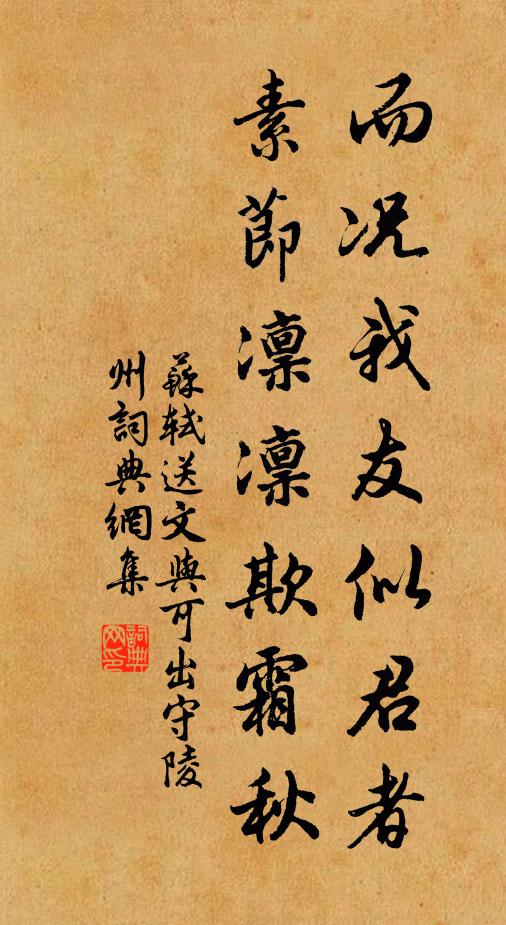 而况我友似君者
素節凛凛欺霜秋
蘇軾送文與可出守陵
州詞典網集
詞典
网印